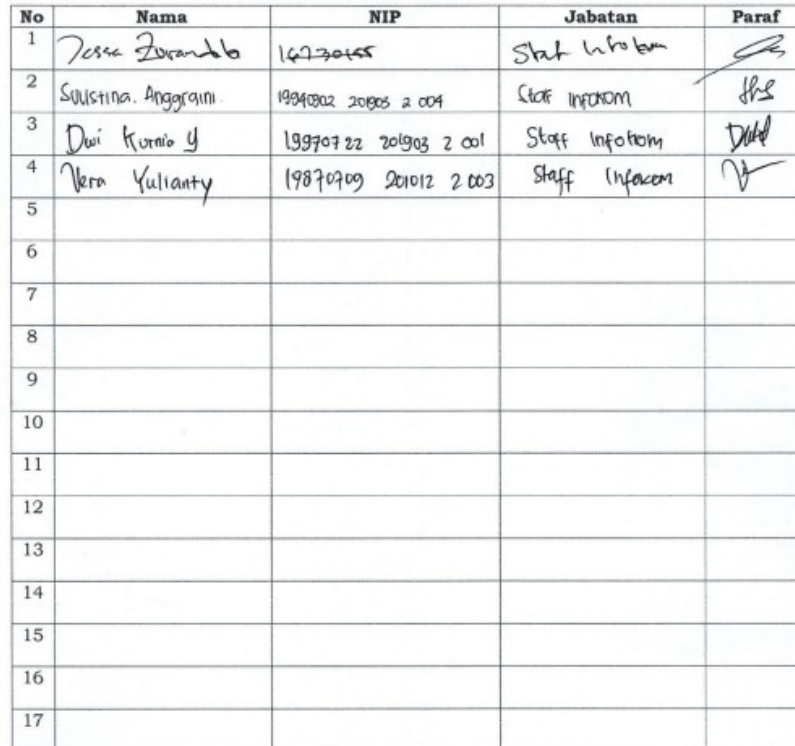 No Nama NIP Jabatan Paraf
1 Staf Infokom
2 Sulistina. Anggraini 19940902 201903 2 004 Staff Infokom
3 Dwi Kurnia Y 19970722 201903 2 001 Staff Infokom
4 Vera Yulianty 19870709 201012 2 003 Staff Infokom
5
6
7
8
9
10
11
12
13
14
15
16
17